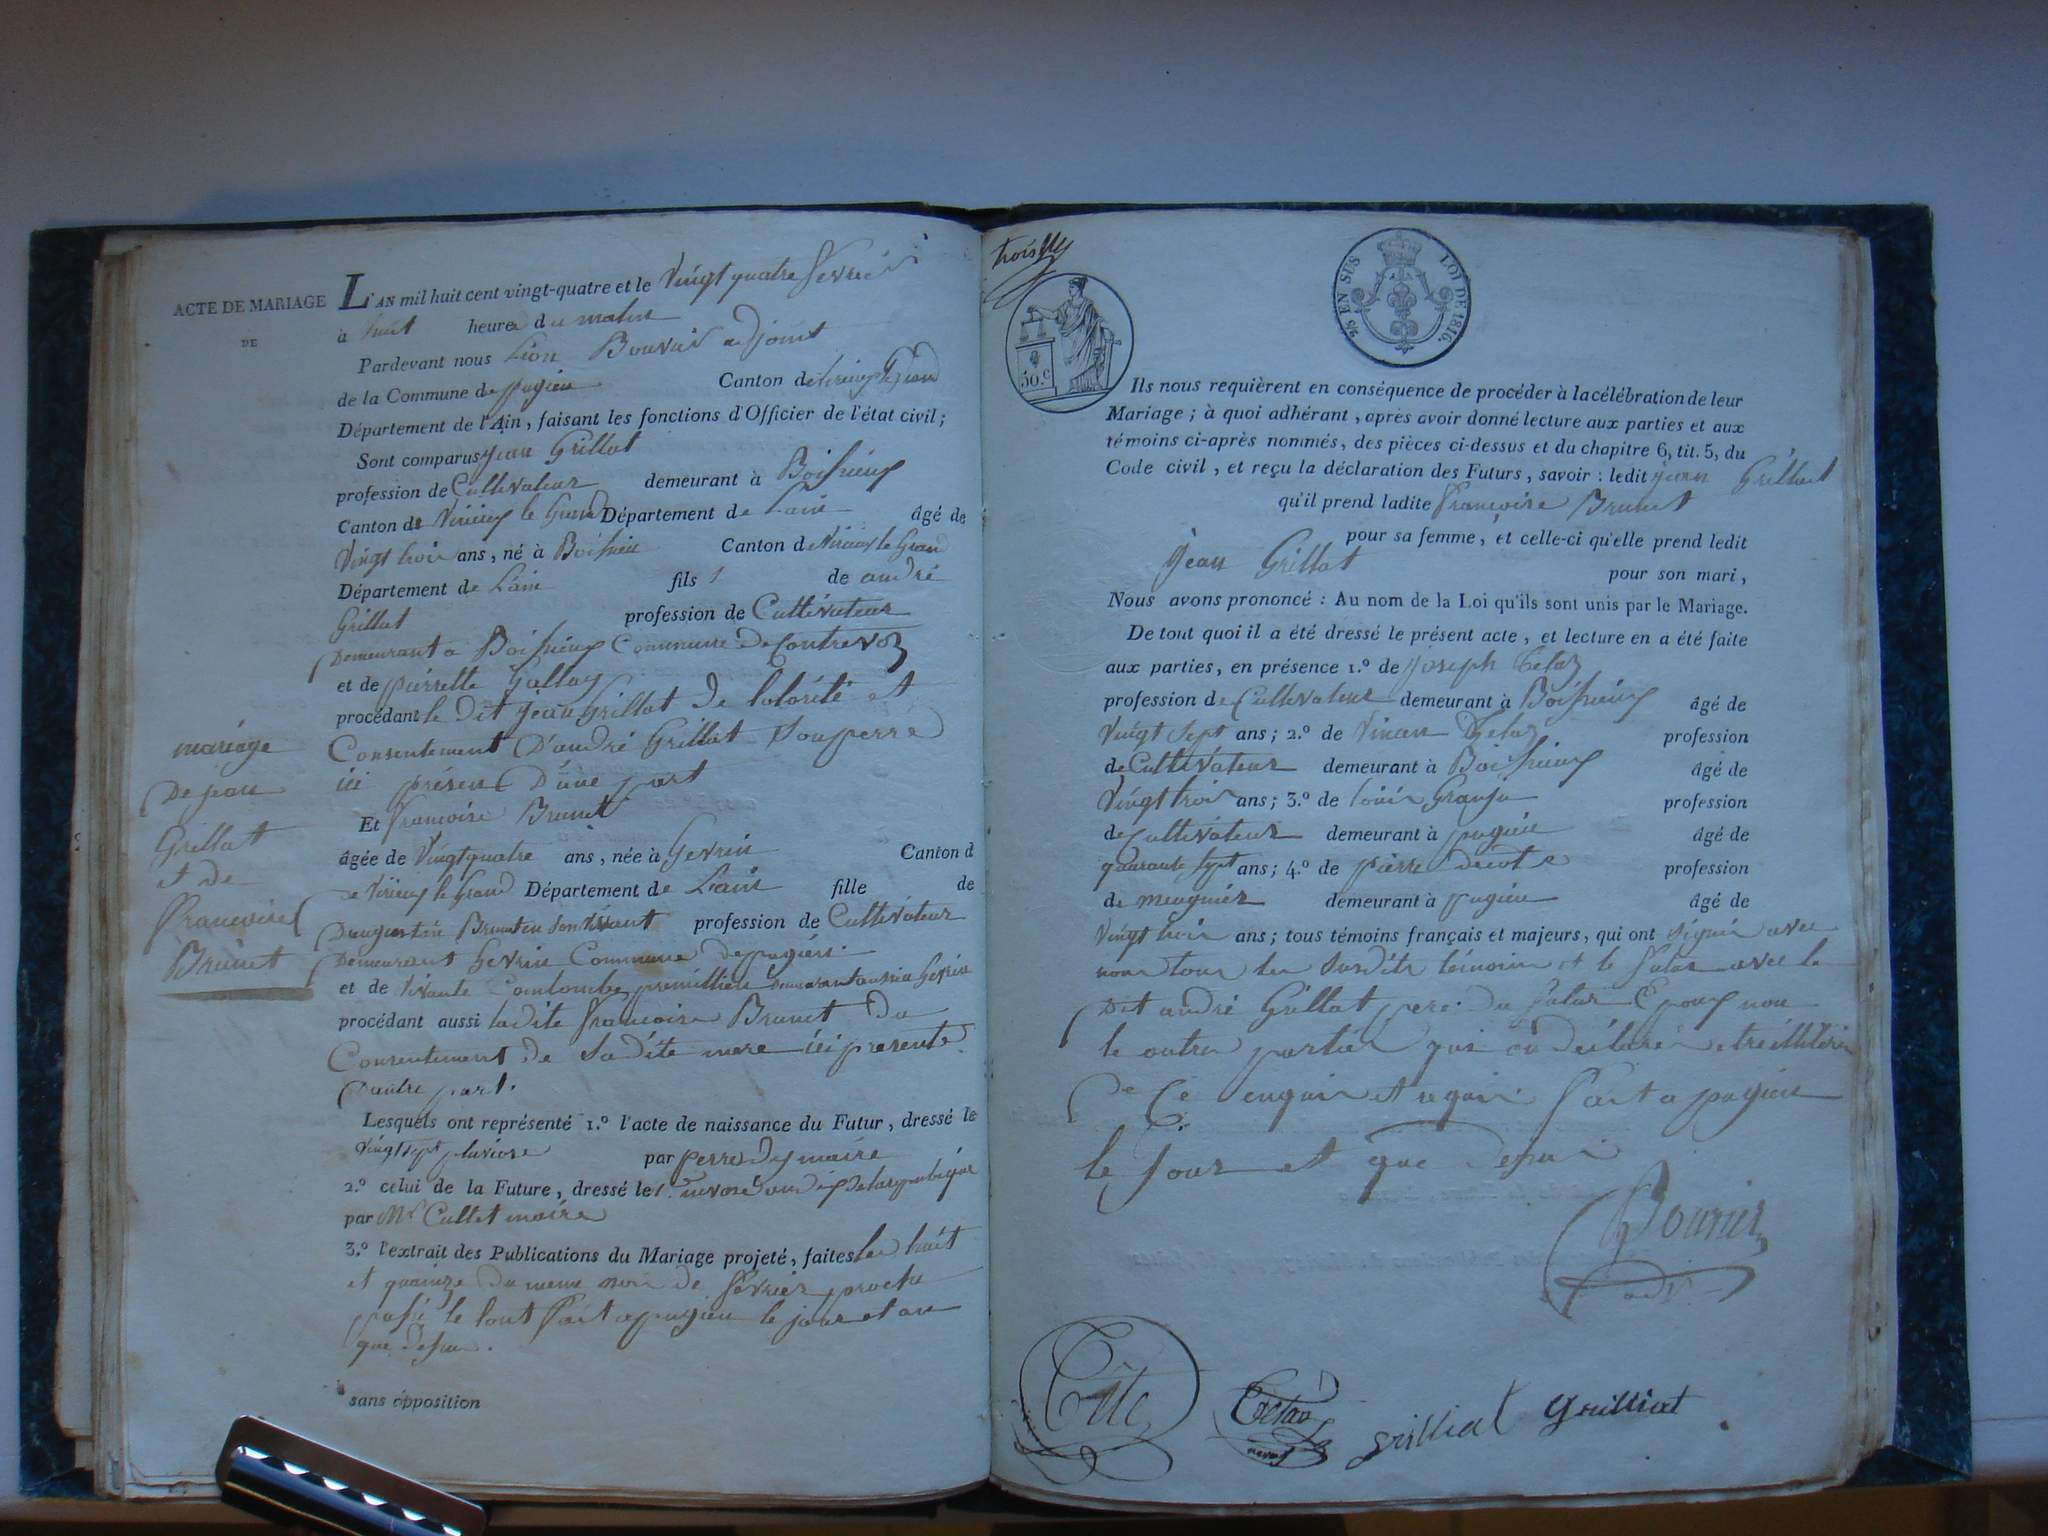 ACTE DE MARIAGE
DE
mariage
De jean
Grillat
et de
francoise
Brunet
L'AN mil huit cent vingt-quatre et le Vingt quatre fevrier
à huit heures du matin
Pardevant nous Bouvier adjoint
de la Commune de pugieu Canton de Virieu le Grand
Département de l'Ain, faisant les fonctions d'Officier de l'état civil;
Sont comparus jean Grillat
profession de Cultivateur demeurant à Boissieux
Canton de Virieux le Grand Département de Lain âgé de
Vingt trois ans, né à Boissieu Canton de Virieux le Grand
Département de Lain fils de andré
Grillat profession de Cultivateur
Demeurant a Boissieux Commune de Contrevoz
et de pierrette Gallay
procédant le dit jean Grillat de lotorité et
Consentement D'andré Grillat son perre
ici présent D'une part
Et francoise Brunet
âgée de Vingt quatre ans, née à Gevrin Canton d
de Virieux le Grand Département de Lain fille de
Daugustin Brunet en son vivant profession de Cultivateur
Demeurant Gevrin Commune de pugieu
et de vivante Coulombe premillieu Demeurant aussi a Gevrin
procédant aussi ladite francoise Brunet du
Consentement de sadite mere ici presente
D'autre part.
Lesquels ont représenté 1.º l'acte de naissance du Futur, dressé le
vingt sept pluviose par maire
2.º celui de la Future, dressé le nivose de la republique
par Mr Cullet maire
3.º l'extrait des Publications du Mariage projeté, faites les huit
et quainze du meme mois de fevrier proche
passé le tout fait a pugieu le jour et an
que Dessus.
sans opposition
trois
50.c
25 EN SUS LOI DE 1816.
Ils nous requièrent en conséquence de procéder à la célébration de leur
Mariage; à quoi adhérant, après avoir donné lecture aux parties et aux
témoins ci-après nommés, des pièces ci-dessus et du chapitre 6, tit. 5, du
Code civil, et reçu la déclaration des Futurs, savoir: ledit jean Grillat
qu'il prend ladite francoise Brunet
pour sa femme, et celle-ci qu'elle prend ledit
jean Grillat pour son mari,
Nous avons prononcé: Au nom de la Loi qu'ils sont unis par le Mariage.
De tout quoi il a été dressé le présent acte, et lecture en a été faite
aux parties, en présence 1.º de joseph
profession de Cultivateur demeurant à Boissieux âgé de
Vingt sept ans; 2.º de profession
de Cultivateur demeurant à Boissieux âgé de
Vingt trois ans; 3.º de louis profession
de Cultivateur demeurant à pugieu âgé de
quarante sept ans; 4.º de pierre profession
de meugnier demeurant à pugieu âgé de
Vingt trois ans; tous témoins français et majeurs, qui ont signés avec
nous tous les susdits témoins et le futur avec le
Dit andré Grillat pere du futur Epoux non
le autres parties qui on déclarés etre illitérés
de Ce enquis et requis. fait a pugieu
le jour et que dessus
Bouvier
adj
grilliat grilliat